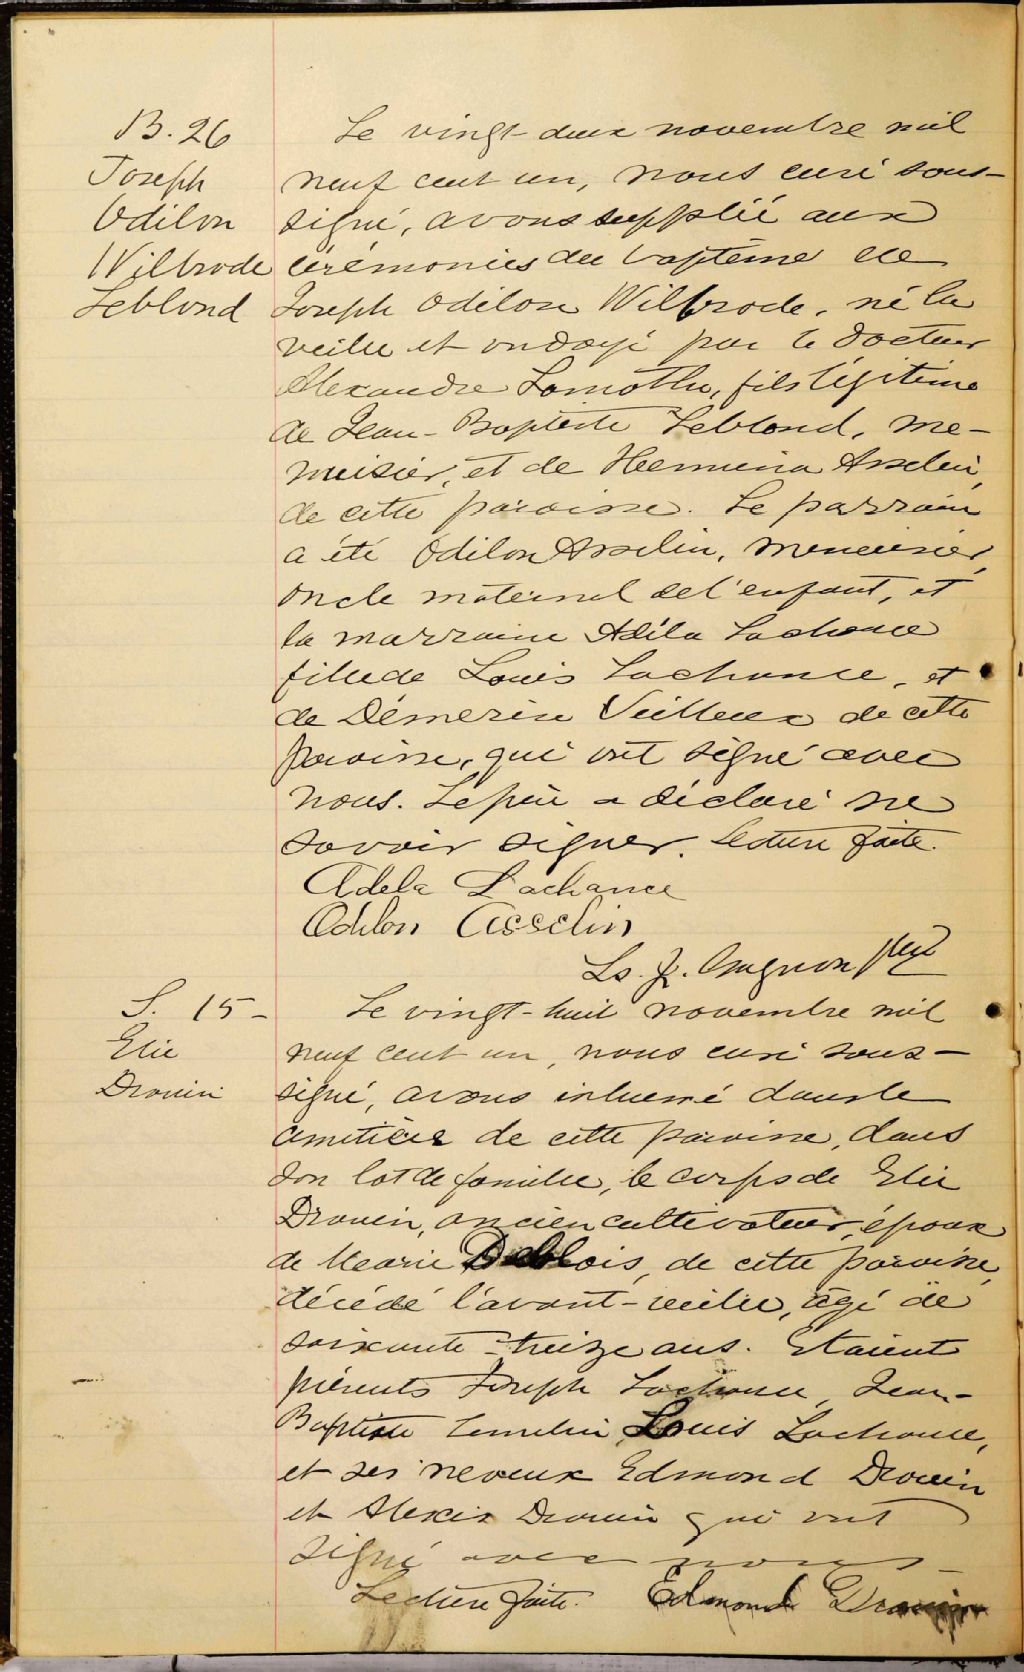 B. 26
Joseph
Odilon
Wilbrode
Leblond
Le vingt-deux novembre mil
neuf cent un, nous curé sous-
signé, avons supplée aux
cérémonies du baptême de
Joseph Odilon Wilbrode, né la
veille et ondoyé par le docteur
Alexandre Lamothe, fils légitime
de Jean-Baptiste Leblond, me-
nuisier, et de Hermina Asselin,
de cette paroisse. Le parrain
a été Odilon Asselin, menuisier,
oncle maternel de l'enfant, et
la marraine Adéla Lachance
fille de Louis Lachance, et
de Démerise Veilleux de cette
paroisse, qui ont signé avec
nous. Le père a déclaré ne
savoir signer. Lecture faite.
Adela Lachance
Odilon Asselin
Ls. J. Gagnon ptre
S. 15-
Elie
Drouin
Le vingt-huit novembre mil
neuf cent un, nous curé sous-
signé, avons inhumé dans le
cimetière de cette paroisse, dans
son lot de famille, le corps de Elie
Drouin, ancien cultivateur, époux
de Marie Deblois, de cette paroisse,
décédé l'avant-veille, âgé de
soixante-treize ans. Etaient
présents Joseph Lachance, Jean-
Baptiste Lemelin, Louis Lachance,
et ses neveux Edmond Drouin
et Alexis Drouin qui ont
signé avec nous
Lecture faite. Edmond Drouin